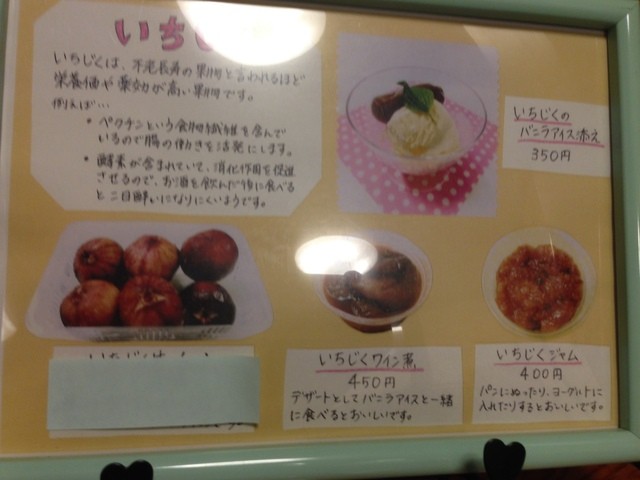 いちじ
いちじくは、不老長寿の果物と言われるほど
栄養価や薬効が高い果物です。
例えば…
・ペクチンという食物繊維を含んで
いるので腸の働きを活発にします。
・酵素が含まれていて、消化作用を促進
させるので、お酒を飲んだ後に食べる
と二日酔いになりにくいようです。
いちじくの
バニラアイス添え
350円
いちじくワイン煮
450円
デザートとしてバニラアイスと一緒
に食べるとおいしいです。
いちじくジャム
400円
パンにぬったり、ヨーグルトに
入れたりするとおいしいです。